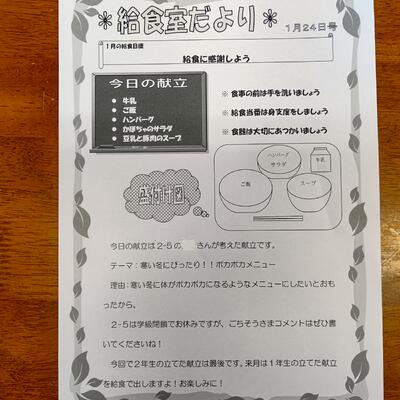 ＊給食室だより＊
1月24日号
1月の給食目標
給食に感謝しよう
今日の献立
● 牛乳
● ご飯
● ハンバーグ
● かぼちゃのサラダ
● 豆乳と豚肉のスープ
※ 食事の前は手を洗いましょう
※ 給食当番は身支度をしましょう
※ 食器は大切にあつかいましょう
盛付け図
ハンバーグ
サラダ
牛乳
ご飯
スープ
今日の献立は2-5の　さんが考えた献立です。
テーマ：寒い冬にぴったり！！ポカポカメニュー
理由：寒い冬に体がポカポカになるようなメニューにしたいとおも
ったから。
2-5は学級閉鎖でお休みですが、ごちそうさまコメントはぜひ書
いてくださいね！
今回で2年生の立てた献立は最後です。来月は1年生の立てた献立
を給食で出しますよ！お楽しみに！